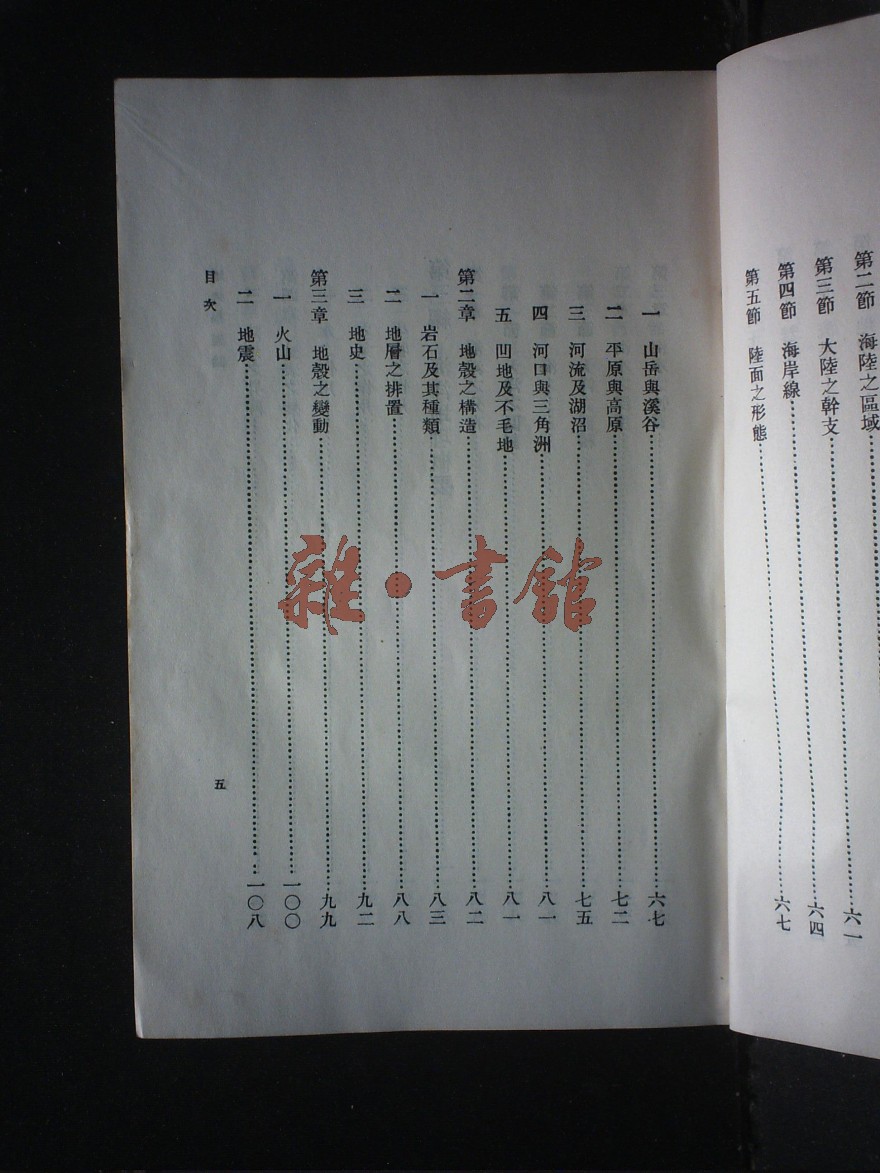 第二節 海陸之區域
第三節 大陸之幹支……六一
第四節 海岸線……六四
第五節 陸面之形態……六七
一 山岳與溪谷……六七
二 平原與高原……七二
三 河流及湖沼……七五
四 河口與三角洲……八一
五 凹地及不毛地……八一
第二章 地殼之構造……八二
一 岩石及其種類……八三
二 地層之排置……八八
三 地史……九二
第三章 地殼之變動……九九
一 火山……一〇〇
二 地震……一〇八
目次
五
雜·書館